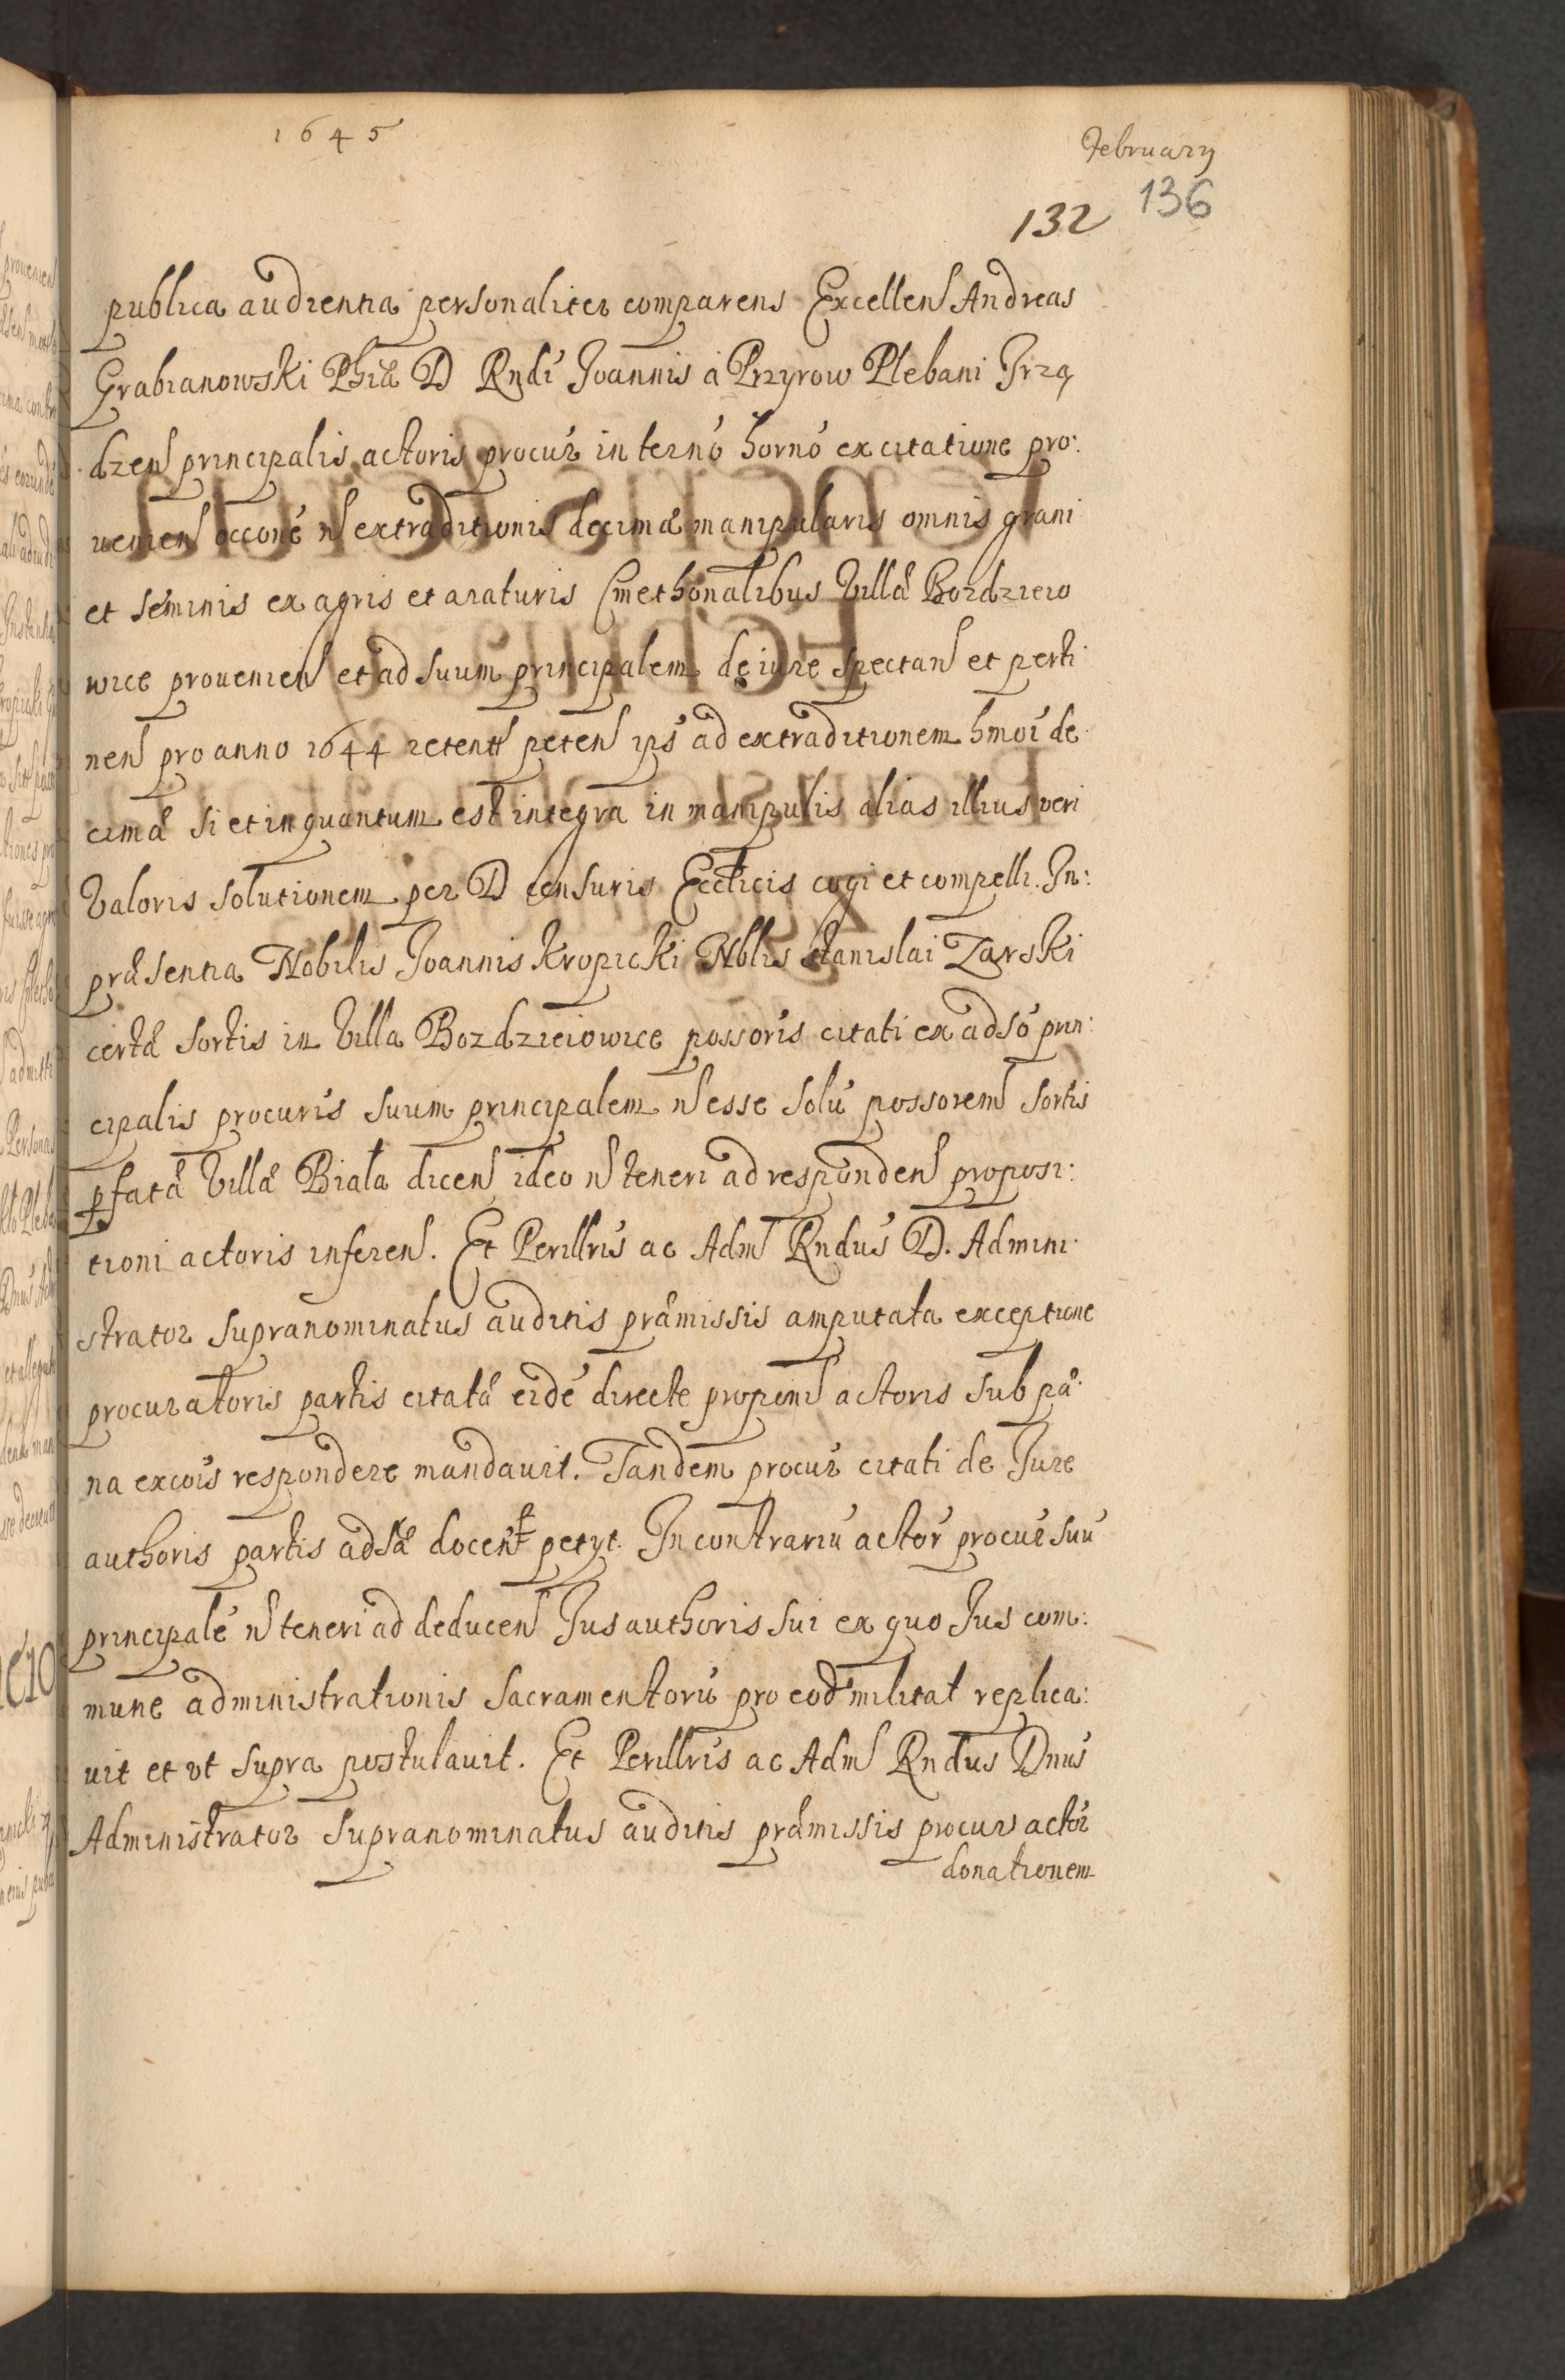 1645
February
132 136
publica audientia personaliter comparens Excellens Andreas
Grabianowski Phiæ D Rndi Joannis à Przyrow Plebani Irzą
dzen principalis actoris procur in termō hornō ex citatione pro:
uenien occone n extraditionis decimæ manipularis omnis grani
et seminis ex agris et araturis Cmethonalibus Villæ Bozdzieio
wice prouenien et ad suum principalem de iure spectan et perti
nen pro anno 1644 retent peten ips ad extraditionem hmoi de
cimæ si et inquantum est integra in manipulis alias illius veri
Valoris solutionem per D censuris Ecclicis cogi et compelli. In:
præsentia Nobilis Joannis Kropicki Nblis Stanislai Zarski
certæ sortis in Villa Bozdzieiowice possoris citati ex adso prin:
cipalis procuris suum principalem n esse solū possorem sortis
pfatæ Villæ Biała dicen ideo n teneri ad responden proposi:
tioni actoris inferen. Et Perillris ac Adm Rndus D. Admini
strator supranominatus auditis præmissis amputata exceptione
procuratoris partis citatæ eidē directe propōni actoris sub pæ
na excōis respondere mandauit. Tandem procur citati de Jure
authoris partis adsæ docen petyt. In contrariū actor procur suū
principalē n teneri ad deducen Jus authoris sui ex quo Jus com:
mune administrationis Sacramentorū pro eod militat replica:
uit et vt supra postulauit. Et Perillris ac Adm Rndus Dnus
Administrator supranominatus auditis præmissis procur actor
donationem